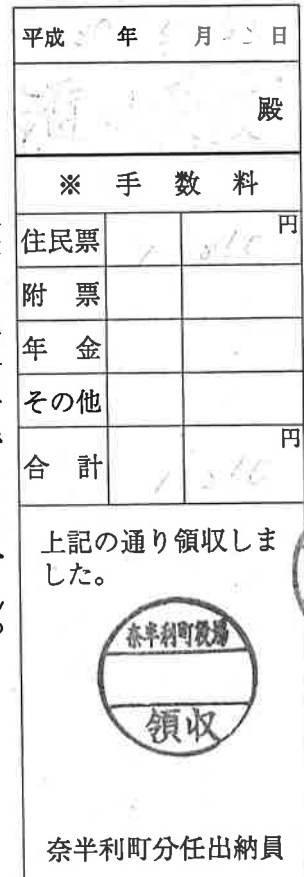 平成 年 月 日
殿
※ 手 数 料
住民票 1 円
附 票
年 金
その他
合 計 1 円
上記の通り領収しま
した。
奈半利町役場
領収
奈半利町分任出納員